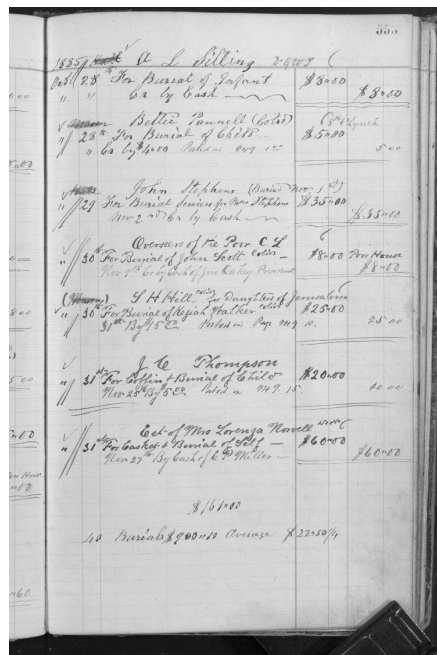 555
1885 A L Silling
Oct 28th For Burial of Infant $8=00
" " Cr by Cash $8=00
Bettie Pannell (Cold)
" 28th For Burial of Child $5=00
" Cr by $4=00 Posted on 949 5 00
John Stephens (Buried Nov 1st)
" 29 For Burial Services for Mrs Stephens $35=00
Nov 2nd Cr by Cash $35=00
Overseers of the Poor C L
" 30th For Burial of John Scott Cold $8=00 Poor House
Nov Cr by Cash of $8=00
S H Hill Cold for Daughters of Jerusalem
" 30th For Burial of Keziah Walker Cold $25=00
31st By $15 Posted on Page 949 10. 25 00
J C Thompson
" 31st For Coffin & Burial of Child $20=00
Nov 25th By 5 Posted on 949. 15.
Est of Mrs Lorenza Norvell
" 31st For Casket & Burial of Self $60=00
Nov 27th By Cash of E Miller $60=00
$161=00
40 Burials $900=10 Average $22=50 1/4